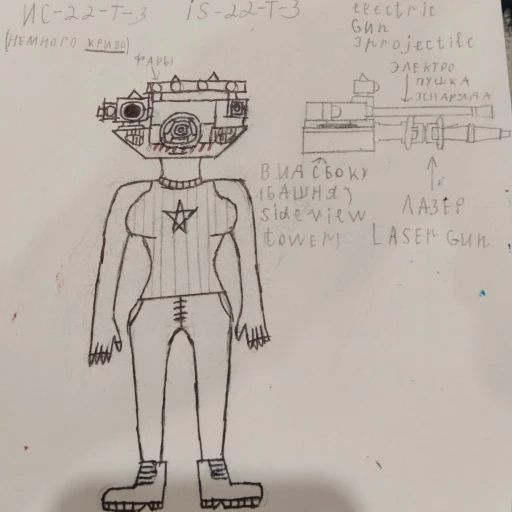 ИС-22-Т-3
(НЕМНОГО КРИВО)
iS-22-T-3
electric
Gun
3projectile
ФАРЫ
ЭЛЕКТРО
ПУШКА
3СНАРЯДА
ВИД СБОКУ
(БАШНЯ)
side view
tower)
ЛАЗЕР
LASER GUN